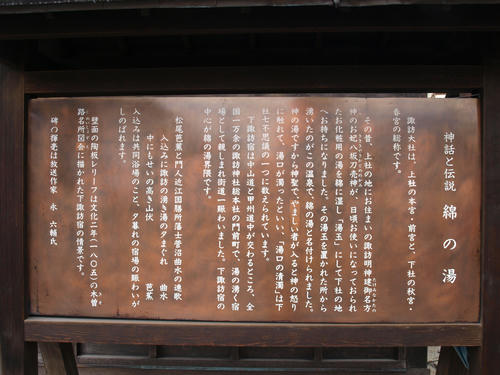 神話と伝説 綿の湯
諏訪大社は、上社の本宮・前宮と、下社の秋宮・
春宮の総称です。
その昔、上社の地にお住まいの諏訪明神建御名方
神のお妃八坂刀売神が、日頃お使いになっておられ
たお化粧用の湯を綿に湿し「湯玉」にして下社の地
へお持ちになりました。その湯玉を置かれた所から
湧いたのがこの温泉で、綿の湯と名付けられました。
神の湯ですから神聖で、やましい者が入ると神の怒り
に触れて、湯口が濁ったといい、「湯口の清濁」は下
社七不思議の一つに数えられています。
下諏訪宿は中山道と甲州道中が交わるところ、全
国一万余の諏訪神社総本社の門前町で、湯の湧く宿
場として親しまれ街道一賑わいました。下諏訪宿の
中心が綿の湯界隈です。
松尾芭蕉と門人近江国膳所藩士菅沼曲水の連歌
入込に諏訪の湧き湯の夕まぐれ 曲水
中にもせいの高き山伏 芭蕉
入込みは共同浴場のこと、夕暮れの宿場の賑わいが
しのばれます。
壁面の陶板レリーフは文化二年（一八〇五）の木曽
路名所図会に描かれた下諏訪宿の情景です。
碑の揮毫は放送作家 永 六輔氏